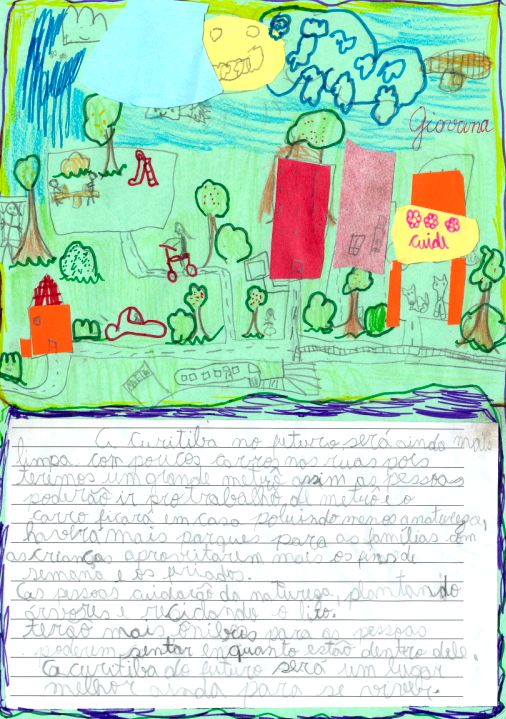 Giovana
cuidi
A curitiba no futuro será ainda mais
limpa com poucos carros nas ruas pois
teremos um grande metrô assim as pessoas
poderão ir pro trabalho de metrô e o
carro ficará em casa poluindo menos a natureza,
haverá mais parques para as famílias com
as crianças aproveitarem mais os fins de
semana e os feriados.
As pessoas cuidarão da natureza, plantando
árvores e reciclando o lixo.
terão mais ônibus para as pessoas
poderem sentar enquanto estão dentro dele.
A curitiba do futuro será um lugar
melhor ainda para se viver.